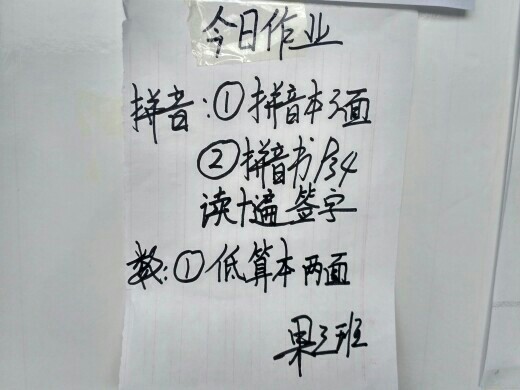 今日作业
拼音:①拼音本3面
②拼音书P34
读十遍 签字
数:①低算本两面
果三班